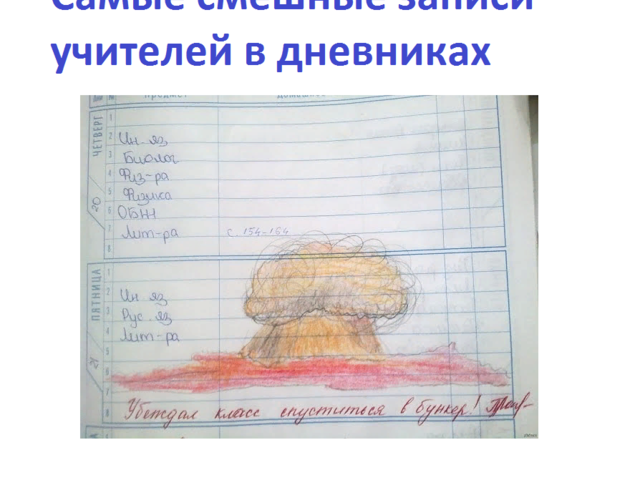 Самые смешные записи
учителей в дневниках
предмет
ЧЕТВЕРГ
20
1
2
Ин. яз
3
Биолог
4
Физ-ра
5
Физика
6
ОБЖ
7
Лит-ра с. 154-164
8
ПЯТНИЦА
21
1
2
Ин яз
3
Рус. яз
4
Лит-ра
5
6
7
8
Убеждал класс спуститься в бункер!